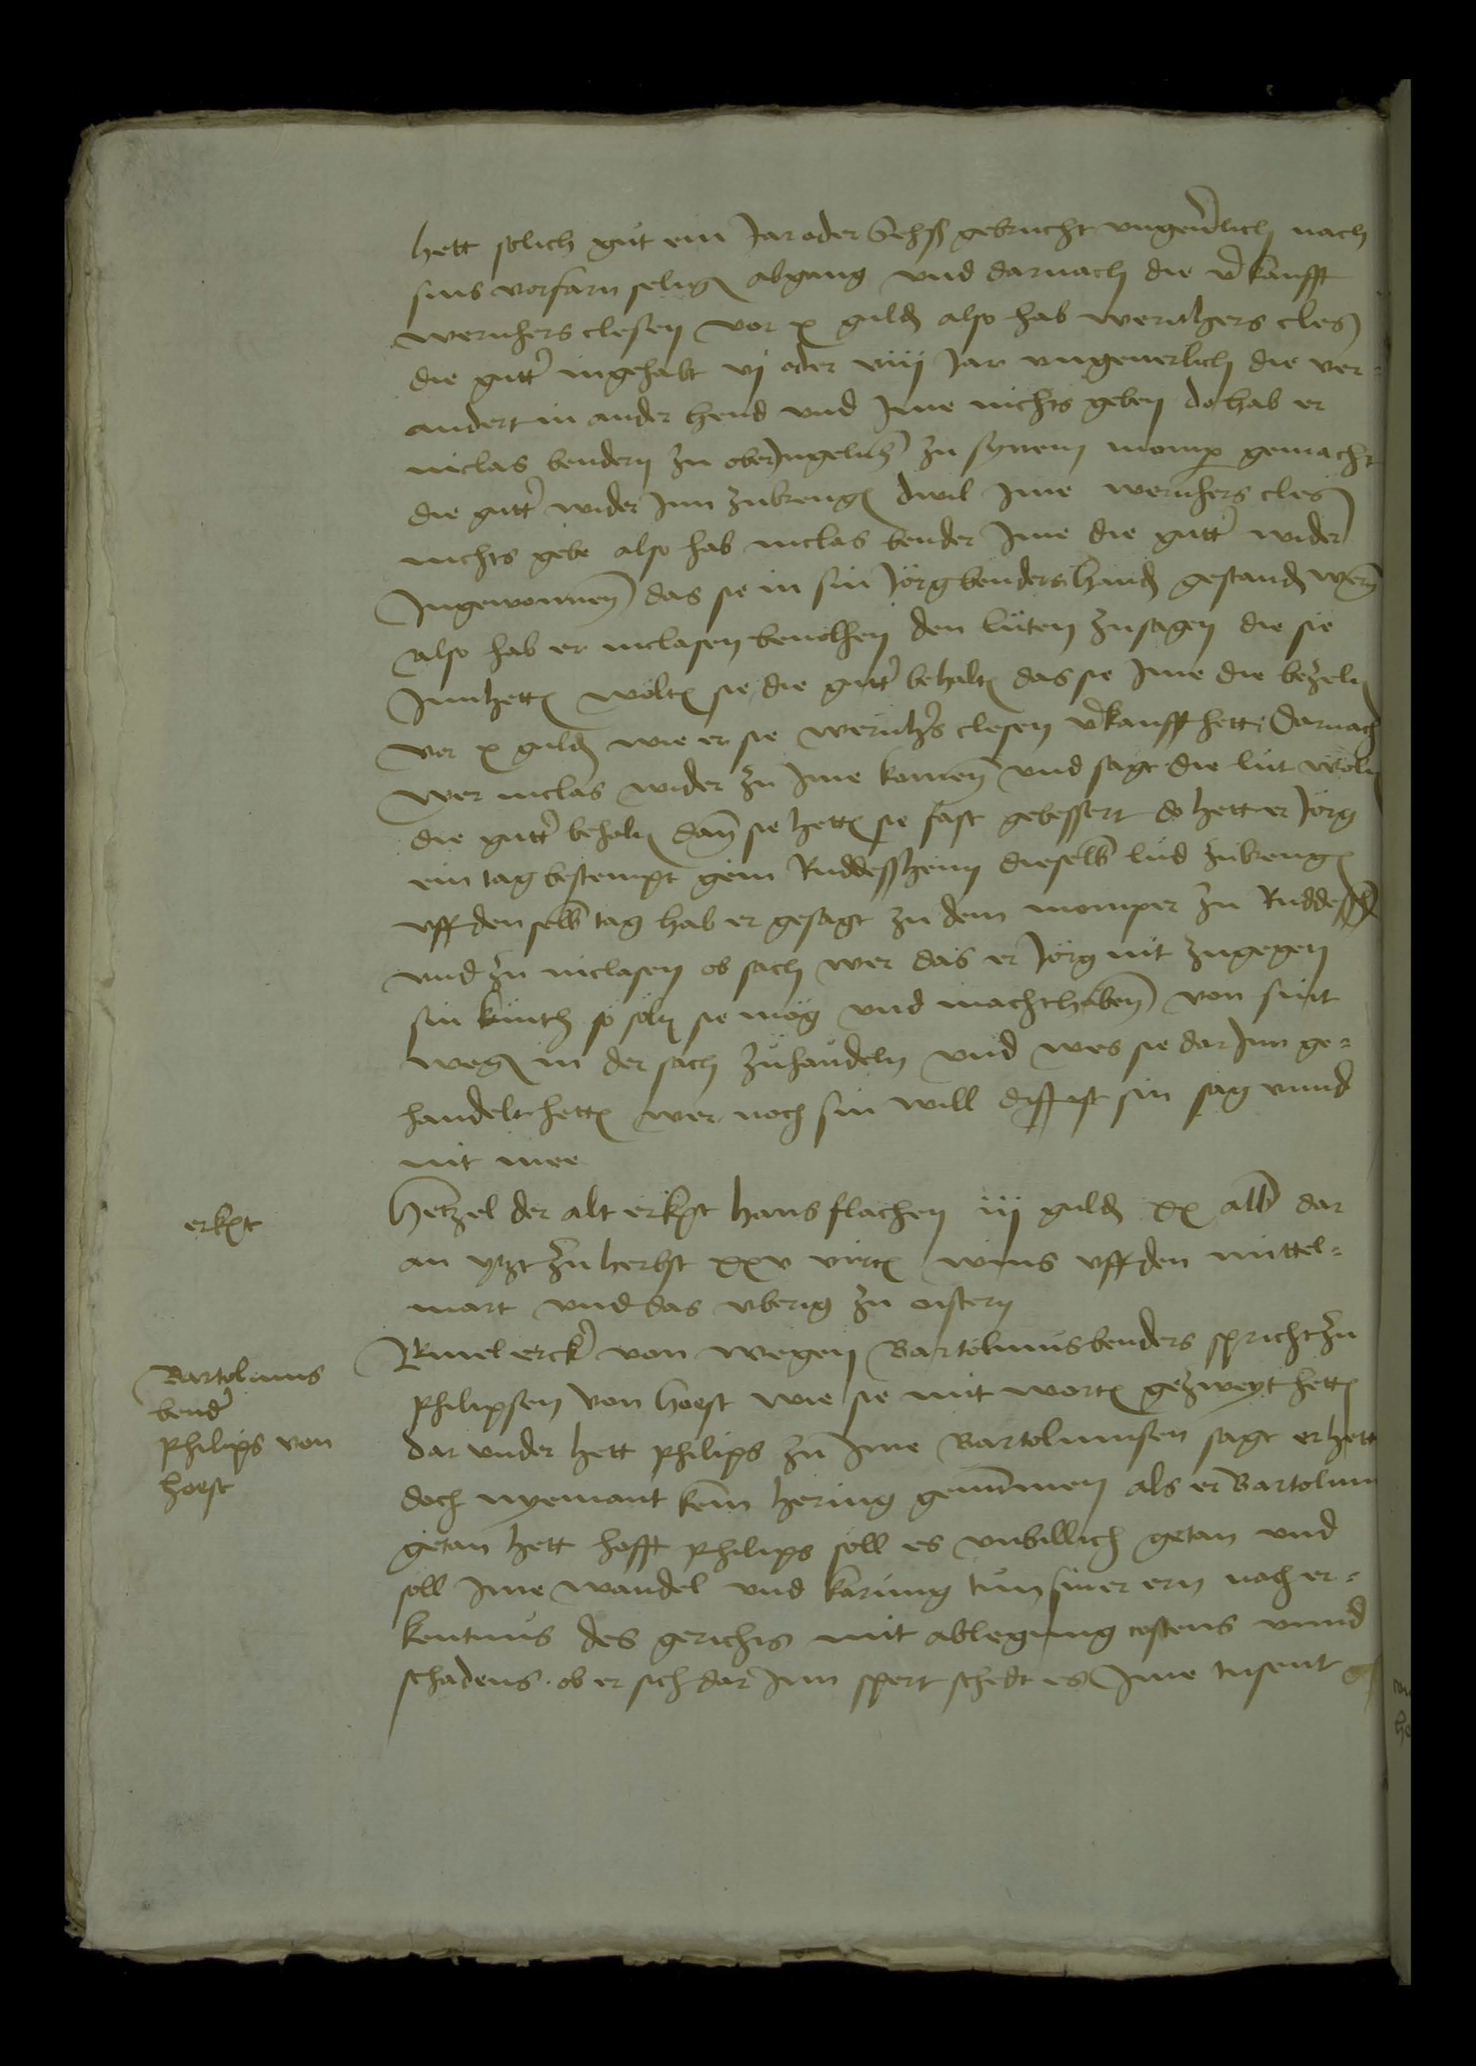 hett solich gut ein Jar oder sehß gebrucht ungeu̕lich nach
sins vorfarn selig(e)n abgang und darnach die v̕kaufft
wernhers clesen vor x guld(e)n also hab wernhers cles
die gutt̕ ingehabt vj oder viij Jar ungeuerlich die ver-
andert in ander hend und Jme nichts geben do hab er
niclas bendern zu oberJngelnh(eim) zu synem momp(er) gemacht
die gutt̕ wider Jnn zubreng(e)n dwil Jme wernhers cles
nichts gebe also hab niclas bender Jme die gutt̕ wider
Jngewonnen das sie in sin Jörg benders hand(e)n gestand(e)n wern
also hab er niclasen beuolhen den lüten zusagen die sie
Jnnhett(e)n wolt(e)n sie die gutt̕ behalt(e)n das sie Jme die bezel(e)n
vor x guld(e)n wie er sie wernh̕s clesen v̕kaufft hette Darnach
wer niclas wider zu Jme komen und sagt die lut wöl(e)n
die gutt̕ behal(e)n dan sie hett(e)n sie fast gebessert do hett er Jörg
ein tag bestempt gein Ruddeßheim dieselb(e)n lud zubreng(e)n
uff den selb(e)n tag hab er gesagt zu dem momper zu Ruddeßh(eim)
und zu niclasen ob sach wer das er Jörg nit zugegen
sin kunth so soln sie mög und macht haben von sint
weg(e)n in der sach zuhandeln und wes sie dar Jnn ge-
handelt hett(e)n wer noch sin will diß ist sin sag unnd
nit mee
erk(enn)t
Hentzel der alt erk(enn)t hans flachen iij guld(e)n xx alb(us) dar
an ytzt zu herbst xxv virt(e)l wins uff den nuttel-
mart und das uberig zu ostern
Bartolmus
bend̕
philips von
horst
Rmel erck̕ von wegen Bartolmus benders spricht zu
philipsen von horst wie sie mit wort(e)n gezweyt hett(e)n
dar under hett philips zu Jme Bartolmusen sagt er hett
doch nyemant kein hering genummen als er Bartolmus
getan hett hofft philips soll es unbillich getan und
soll Jme wandel und karung tun siner ern nach er-
kentnus des gerichts mit ablegung costens unnd
schadens. ob er sich dar Jnn spert schedt es Jme tusent